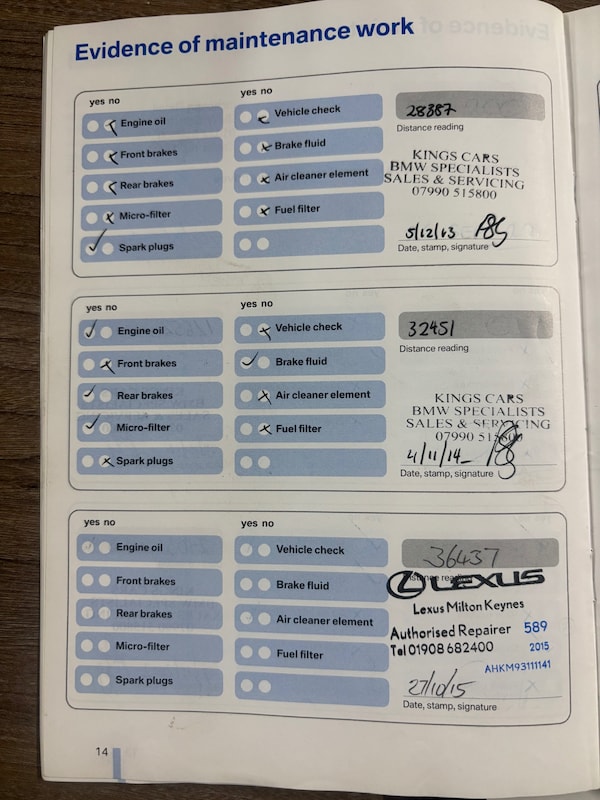 Evidence of maintenance work
yes no
yes no
Engine oil
Vehicle check
28387
Distance reading
Front brakes
Brake fluid
KINGS CARS
BMW SPECIALISTS
Rear brakes
Air cleaner element
SALES & SERVICING
07990 515800
Micro-filter
Fuel filter
5/12/13
Spark plugs
Date, stamp, signature
yes no
yes no
Engine oil
Vehicle check
32451
Distance reading
Front brakes
Brake fluid
Rear brakes
Air cleaner element
KINGS CARS
BMW SPECIALISTS
Micro-filter
Fuel filter
SALES & SERVICING
07990 515800
Spark plugs
4/11/14
Date, stamp, signature
yes no
yes no
Engine oil
Vehicle check
36437
Distance reading
LEXUS
Front brakes
Brake fluid
Lexus Milton Keynes
Rear brakes
Air cleaner element
Authorised Repairer 589
Tel 01908 682400 2015
Micro-filter
Fuel filter
AHKM93111141
Spark plugs
27/10/15
Date, stamp, signature
14